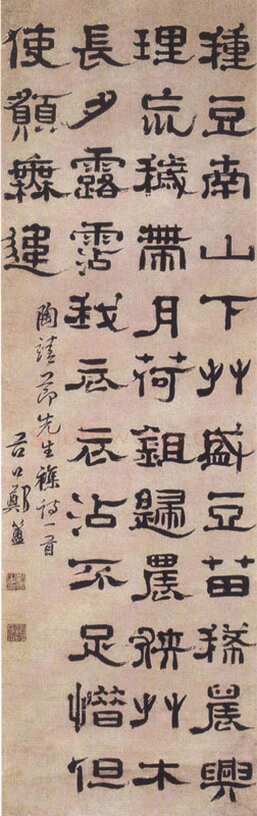 種豆南山下艸盛豆苗稀晨興
理荒穢帶月荷鉏歸狹艸木
長夕露霑我衣衣沾不足惜但
使願無違
陶靖節先生雜詩一首
谷口鄭簠